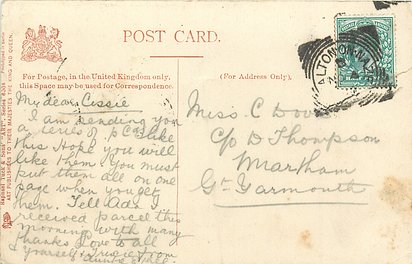 POST CARD.
For Postage, in the United Kingdom only,
this Space may be used for Correspondence.
(For Address Only.)
My dear Cissie
I am sending you
a series of p Cs like
this Hope you will
like them. You must
put them all on one
page when you get
them. Tell Ada I
received parcel this
morning with many
thanks Love to all
yourself & from
Miss C
c/o D Thompson
Martham
Gt Yarmouth